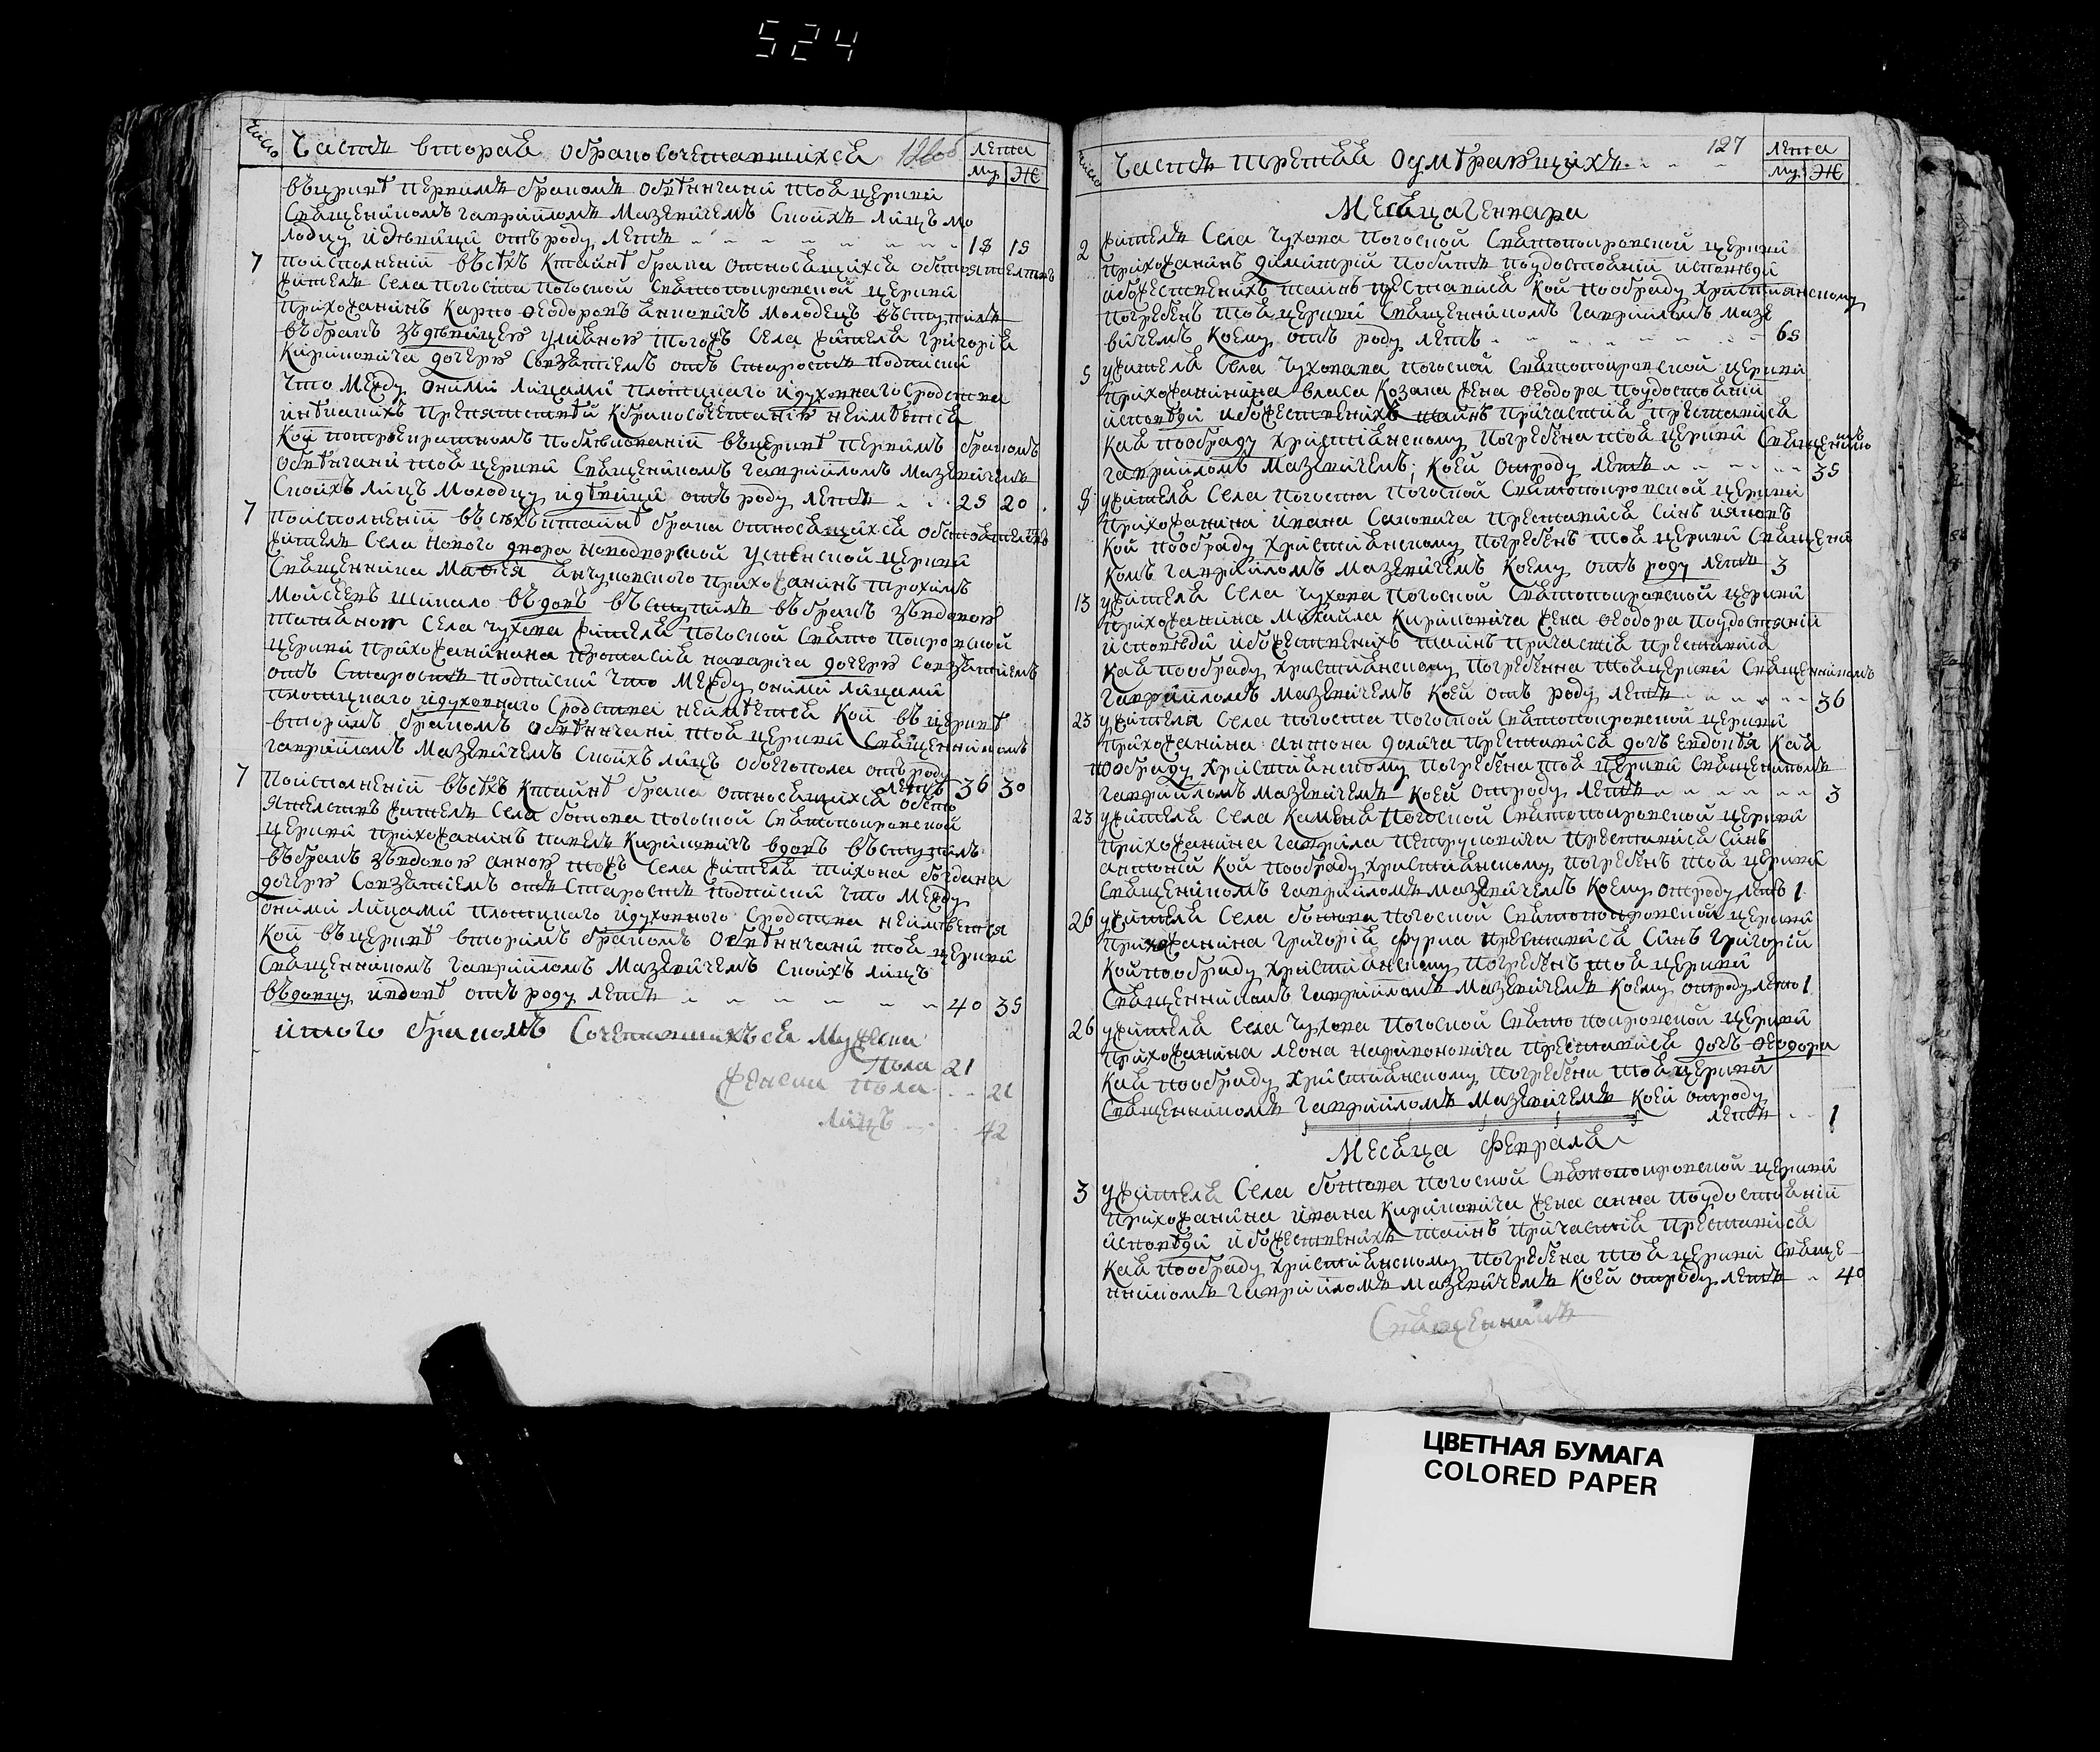 524
Число
Часть вторая обракосочетавшихся 126об
лета
Му. Же
вцеркве первимъ бракомъ обвѣнчани тоя церкви
Священикомъ Гавріиломъ Мазевичемъ Своихъ лицъ мо
лодцу идѣвици отъ роду летъ 18 18
7 поисполненій всѣхъ Ктайнѣ брака относящихся обстоятелствъ
житель Села Погоста Погоской Святопокровской церкви
прихожанинъ Карпо Ѳеодоровъ Молодецъ въступилъ
въбракъ здѣвицею Уліаною тогожъ Села жителя Григорія
Кириковича дочерю Совзятіемъ отъ Старостъ подписки
что Между оними лицами плотцкаго идуховнаго сродства
инѣкакихъ препятствій Кбракосочетанію неимѣется
Кои потроекратномъ публикованій въцеркве первимъ бракомъ
обвѣнчани тоя церкви Священикомъ Гавріиломъ Мазевичемъ
Своихъ лицъ Молодцу идѣвици отъ роду летъ 25 20
7 поисполненій всѣхъ ктайнѣ брака относящихся обстоятелствъ
житель Села Нового двора Новодворской Успенской церкви
Священника Матѳея прихожанинъ Трохимъ
Мойсеевъ Шикало вдовъ въступилъ въбракъ звдовою
Татіаною Села Чухова жителя Погоской Свято Покровской
церкви прихожанина Протасія дочерю Совзятіемъ
отъ Старостъ подписки что Между оними лицами
плотцкаго идуховнаго Сродства неимѣется Кои въ церкве
вторимъ бракомъ обвѣнчани тоя церкви Священникомъ
Гавріиломъ Мазевичемъ Своихъ лицъ обоегопола отъ роду
летъ 36 30
7 поисполненій всѣхъ Ктайнѣ брака относящихся обсто
ятелствъ житель Села Ботова Погоской Святопокровской
церкви прихожанинъ Павелъ Кириковичъ вдовъ въступилъ
въбракъ звдовою Анною тожъ Села жителя Тихона Богдана
дочерю Совзятіемъ отъ Старостъ подписки что Между
оними лицами плотцкаго идуховного Сродства неимѣется
Кои въцеркве вторимъ бракомъ обвѣнчани тоя церкви
Священникомъ Гавріиломъ Мазевичемъ Своихъ лицъ
въдовцу ивдовѣ отъ роду летъ 40 35
итого бракомъ Сочетавшихъся Мужеска
пола 21
женска пола 21
лицъ 42
Число
Часть третяя оумѣравщихъ 127
лета
Му. Же
Месяца Генвара
2 житель Села Чухова Погоской Святопокровской церкви
прихожанинъ Димитрій поудостоаній исповѣди
ибожественихъ тайнъ преставися Кой пообряду христіянскому
погребенъ тоя церкви Священникомъ Гавріиломъ Мазе
вичемъ Коему отъ роду летъ 65
5 ужителя Села Чухова Погоской Святопокровской церкви
прихожанинина Власа Козака жена Ѳеодора поудостоаній
исповѣди ибожественихъ тайнъ причастія преставися
Кая пообряду христіянскому погребена тоя церкви Священникомъ
Гавріиломъ Мазевичемъ; Коей отроду летъ 35
8 ужителя Села Погоста Погоской Святопокровской церкви
прихожанина Ивана Саковича преставися Синъ Іяковъ
Кой пообряду христіянскому погребенъ тоя церкви Священи
комъ Гавріиломъ Мазевичемъ Коему отъ роду летъ 3
13 ужителя Села Чухова Погоской Святопокровской церкви
прихожанина Михайла Кириковича жена Ѳеодора поудостоаній
исповѣди ибожественихъ тайнъ причастія преставися
Кая пообряду христіянскому погребенна тояцеркви Священникомъ
Гавріиломъ Мазевичемъ Коей отъ роду летъ 36
23 ужителя Села Погоста Погоской Святопокровской церкви
прихожанина Антона Долича преставися дочъ Евдокія Кая
пообряду христіянскому погребена тоя церкви Священикомъ
Гавріиломъ Мазевичемъ Коей отроду летъ 3
23 ужителя Села Каменя Погоской Святопокровской церкви
прихожанина Гаврила Петруковича преставися Синъ
Антоній Кой пообряду христіянскому погребенъ тоя церкви
Священикомъ Гавріиломъ Мазевичемъ Коему отроду летъ 1
26 ужителя Села Ботова Погоской Святопокровской церкви
прихожанина Григорія Фурса преставися Синъ Григорій
Койпообряду христіянскому погребенъ тоя церкви
Священникомъ Гавріиломъ Мазевичемъ Коему отроду лето 1
26 ужителя Села Чухова Погоской Свято Покровской церкви
прихожанина Леона преставися дочъ Ѳеодора
Кая пообряду христіянскому погребена тоя церкви
Священникомъ Гавріиломъ Мазевичемъ Коей отроду
летъ 1
Месяца Февраля
3 ужителя Села Ботова Погоской Святопокровской церкви
прихожанина Ивана Кириковича жена Анна поудостоаній
исповѣди ибожественихъ тайнъ причастія преставися
Кая пообряду христіянскому погребена тоя церкви Свяще
нникомъ Гавріиломъ Мазевичемъ Коей отроду летъ 40
Священникъ
ЦВЕТНАЯ БУМАГА
COLORED PAPER